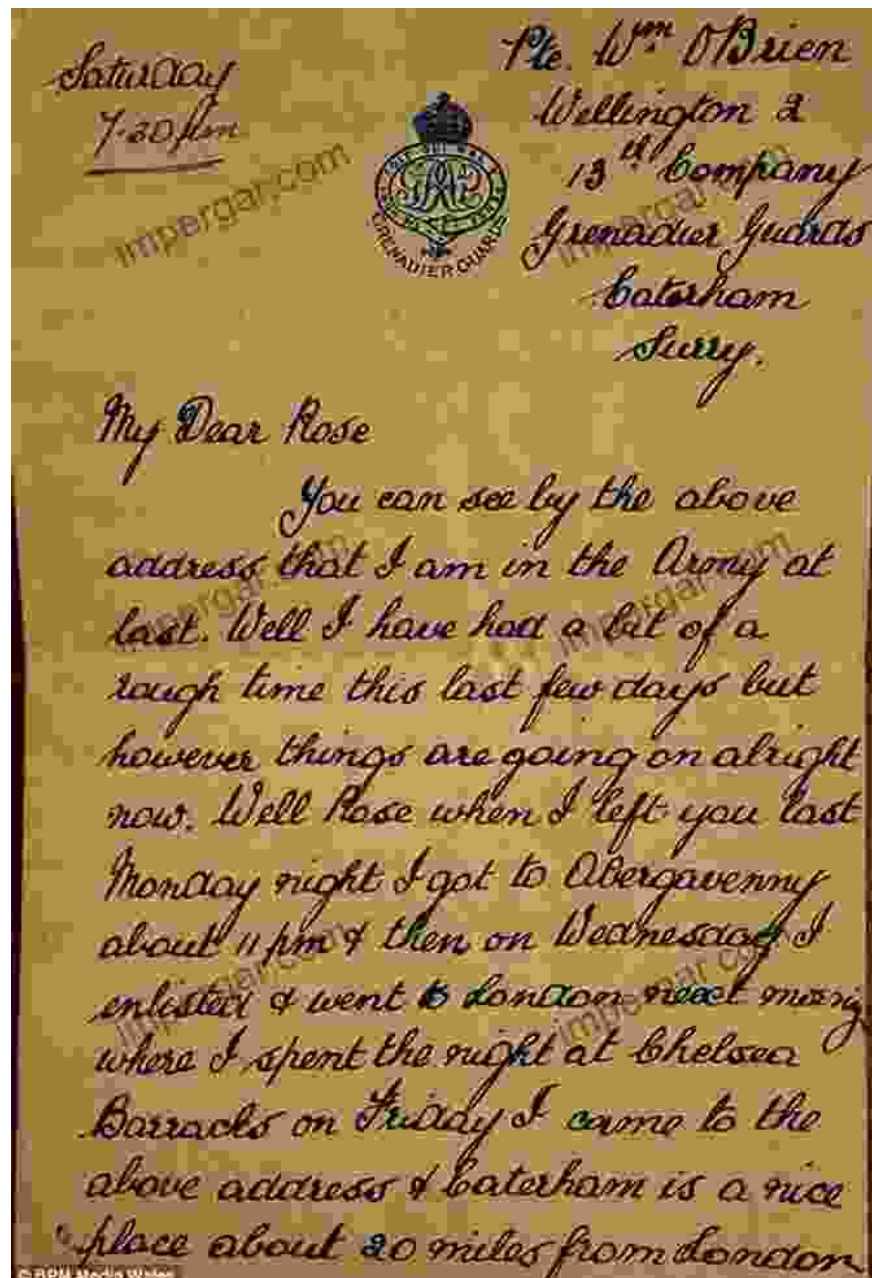 Saturday
7.30pm
Pte. Wm O'Brien
Wellington 2
13th Company
Grenadier Guards
Caterham
Surry.
GRENADIER GUARDS
My Dear Rose
You can see by the above
address that I am in the Army at
last. Well I have had a bit of a
rough time this last few days but
however things are going on alright
now. Well Rose when I left you last
Monday night I got to Abergavenny
about 11 pm & then on Wednesday I
enlisted & went to London next morning
where I spent the night at Chelsea
Barracks on Friday I came to the
above address & Caterham is a nice
place about 20 miles from London
impergar.com
impergar.com
impergar.com
impergar.com
impergar.com
impergar.com
Media Wales